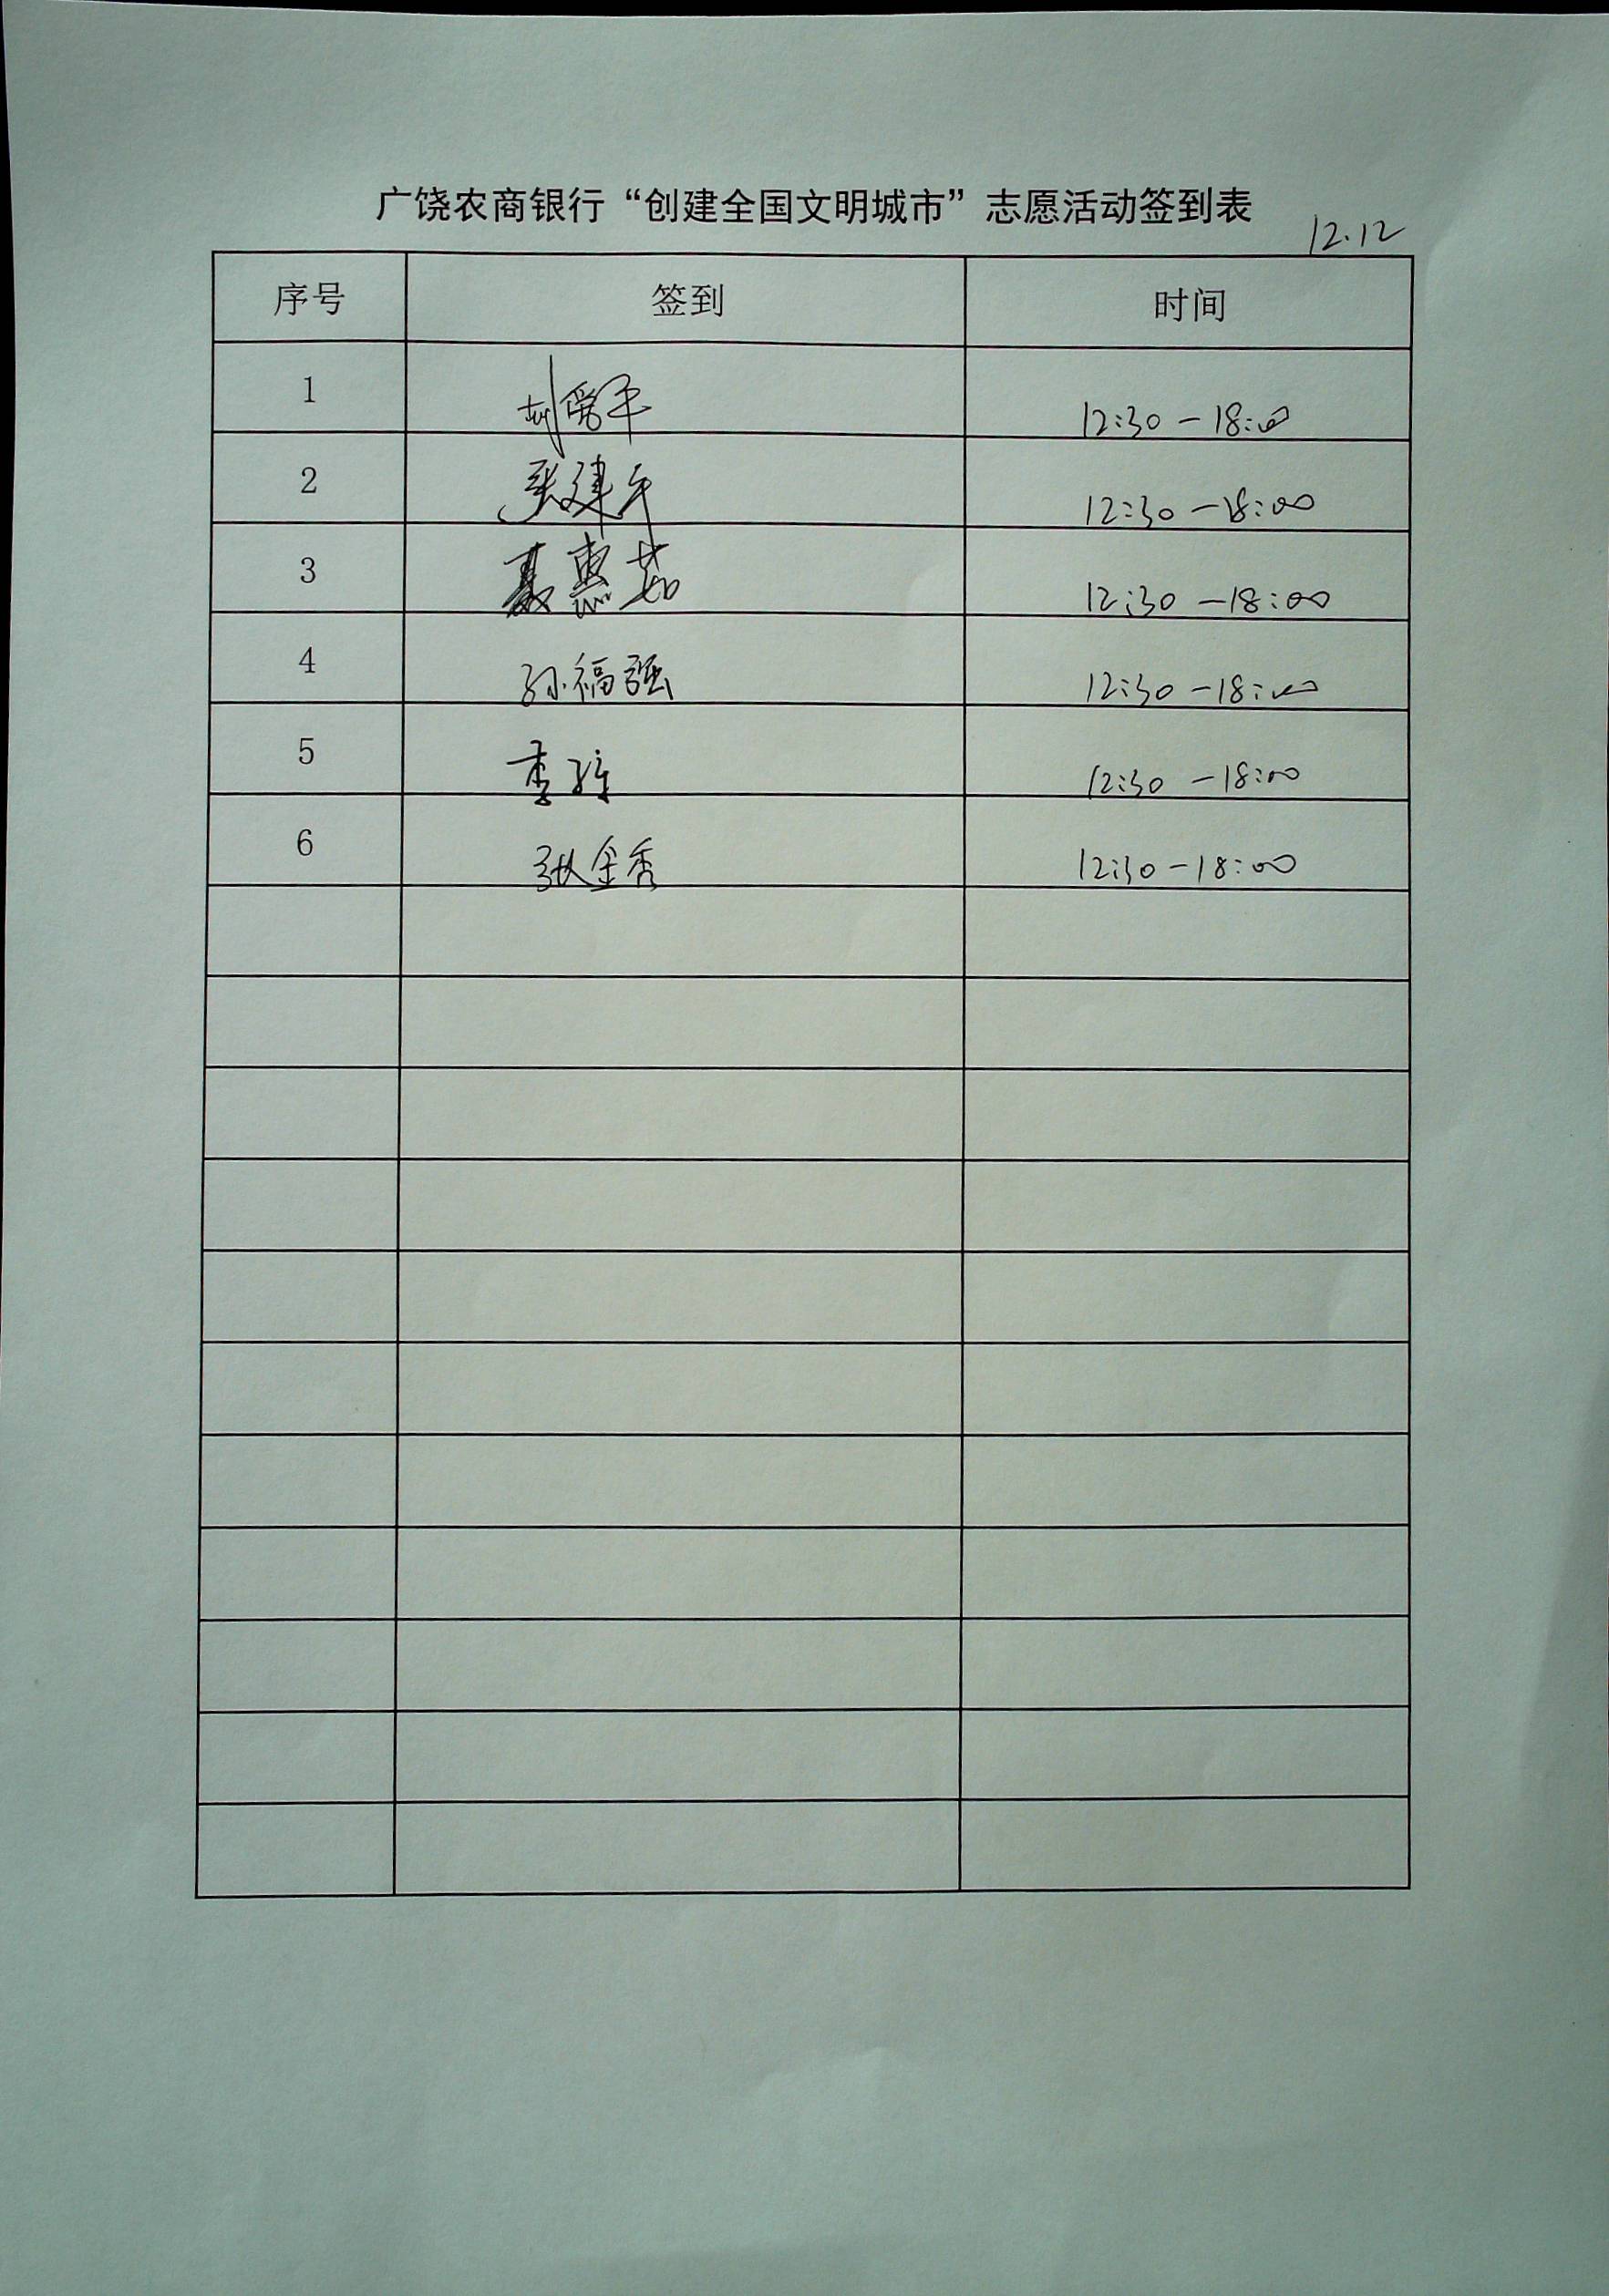 广饶农商银行“创建全国文明城市”志愿活动签到表
12.12
序号 签到 时间
1 12:30-18:00
2 张建军 12:30-18:00
3 聂惠茹 12:30-18:00
4 孙福强 12:30-18:00
5 李 12:30-18:00
6 张金秀 12:30-18:00